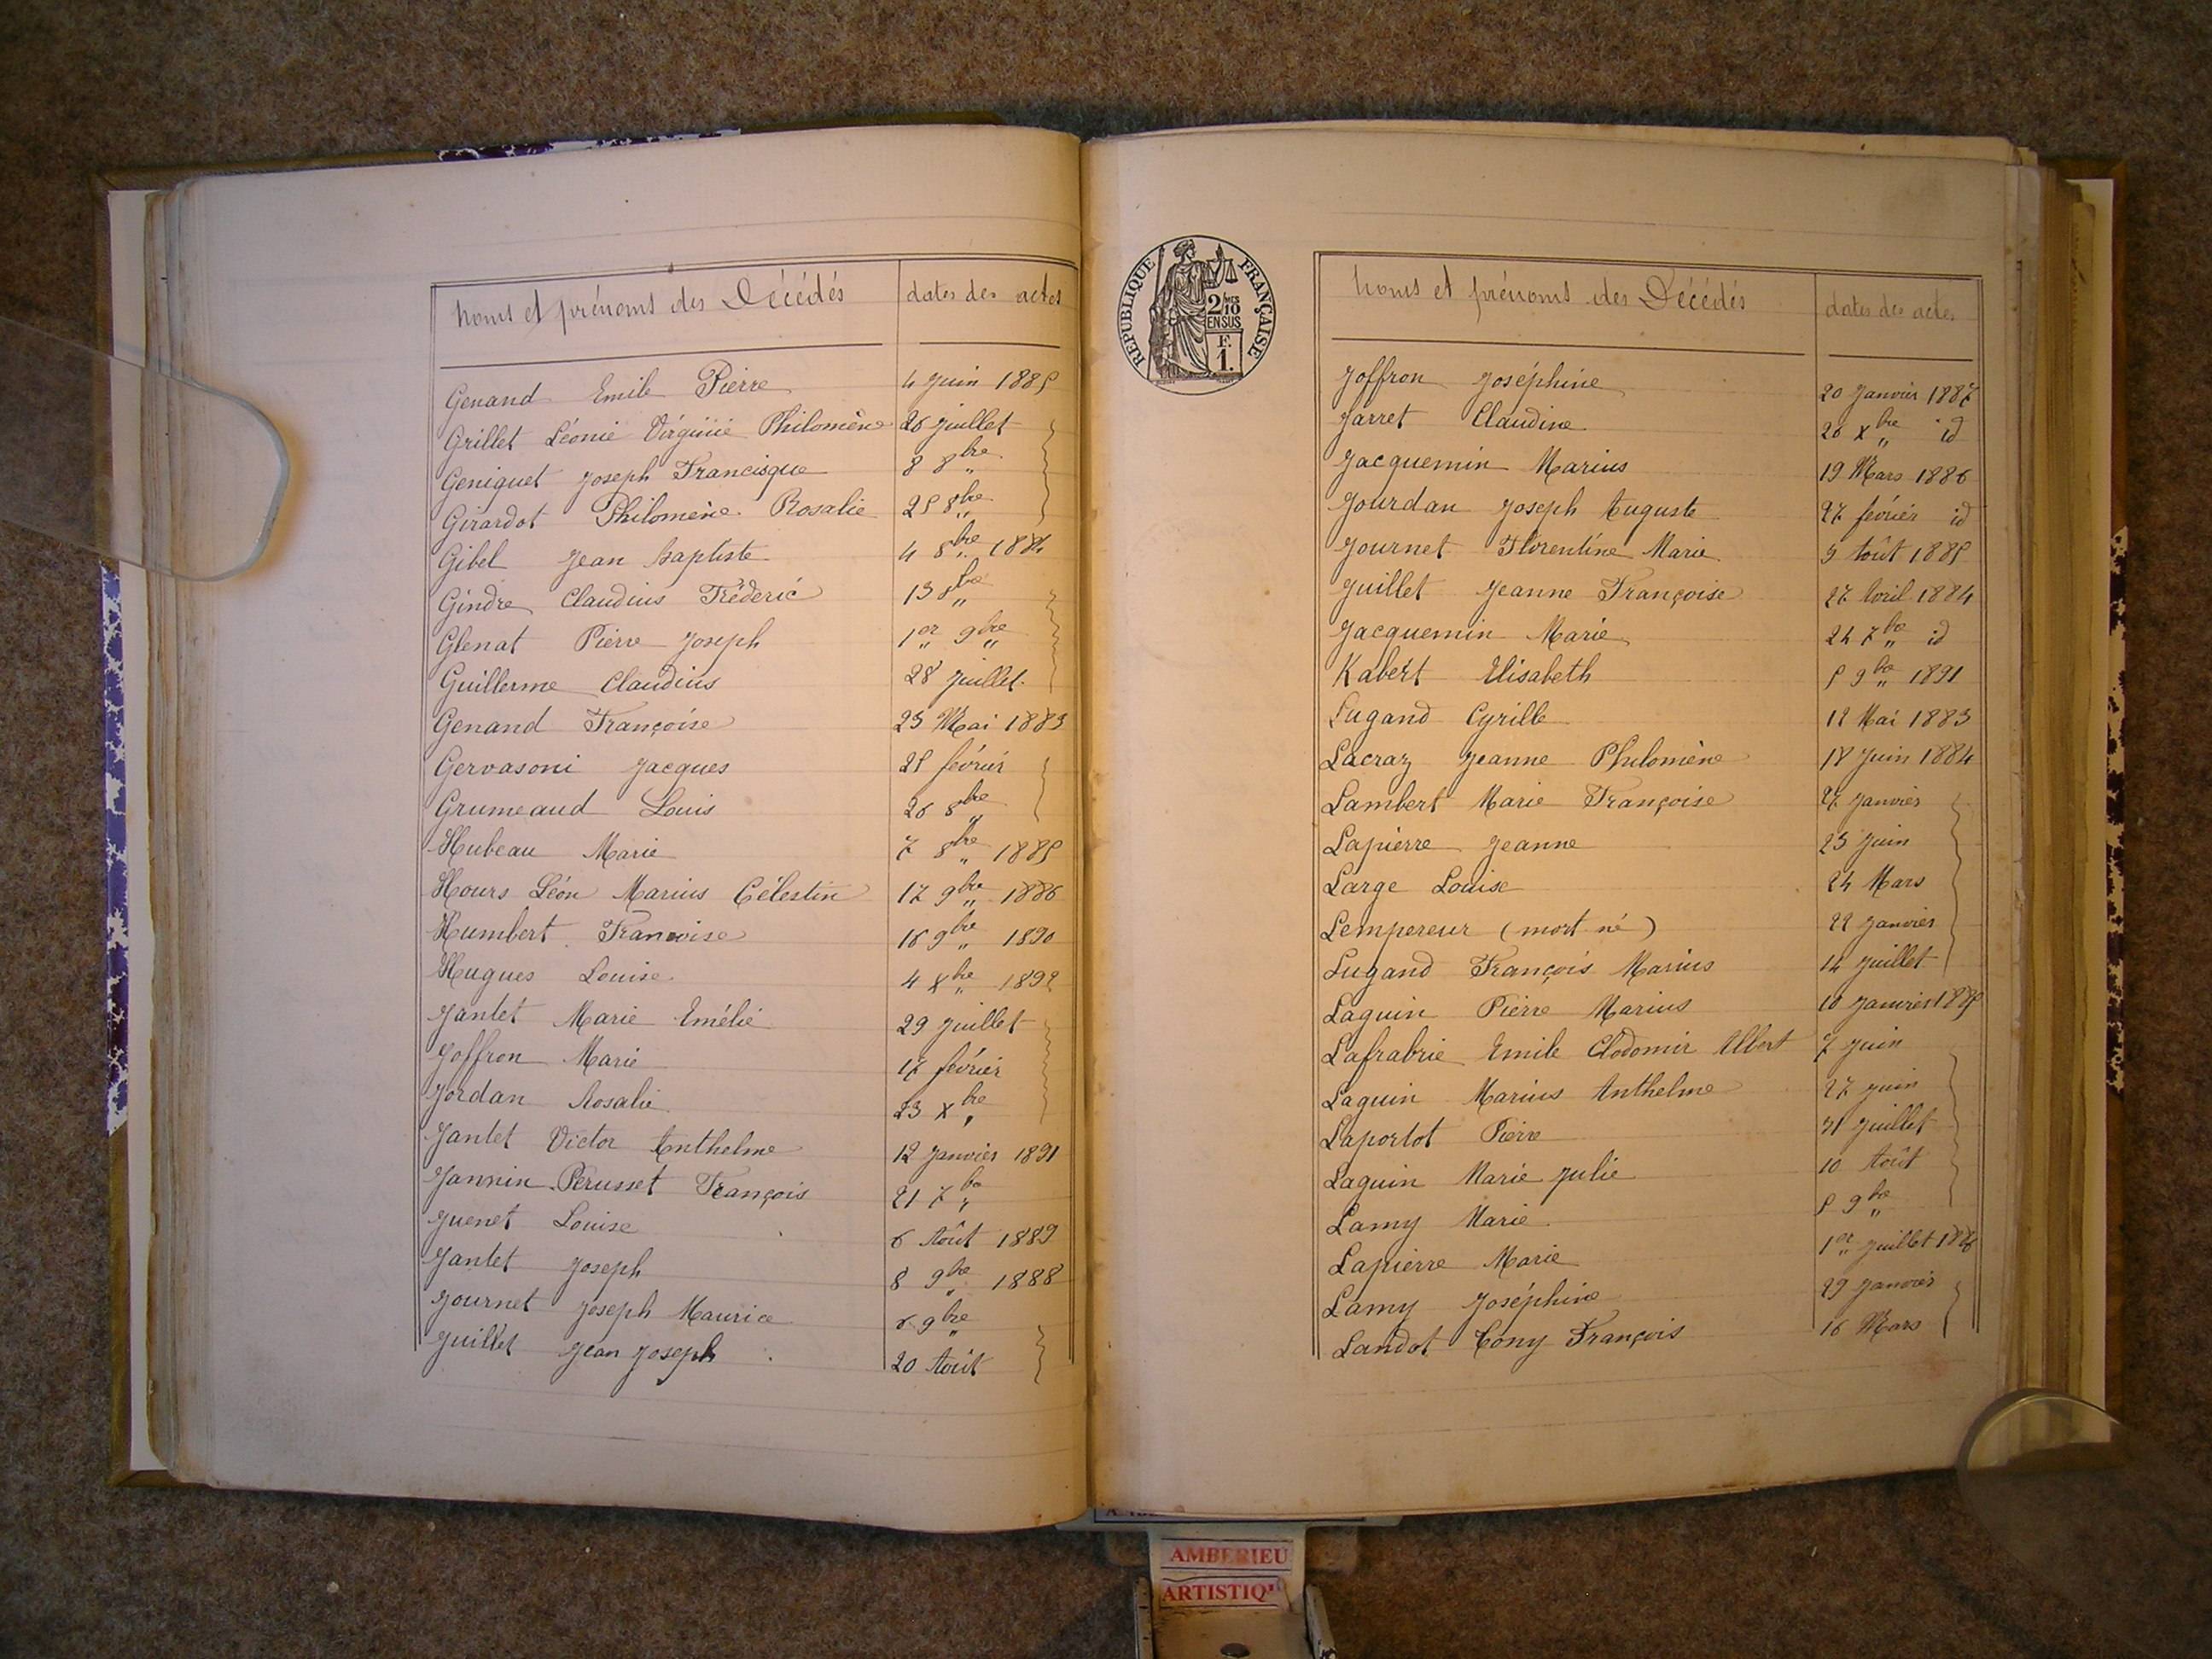 Noms et prénoms des Décédés dates des actes
Genand Emile Pierre 4 Juin 1885
Grillet Léonie Virginie Philomène 26 Juillet
Geniquet Joseph Francisque 8 8bre
Girardot Philomène Rosalie 25 8bre
Gibel Jean Baptiste 4 8bre 1884
Gindre Claudius Fréderic 13 8bre
Glenat Pierre Joseph 1er 9bre
Guillerme Claudius 28 Juillet
Genand Françoise 23 Mai 1883
Gervasoni Jacques 25 février
Grumeaud Louis 26 8bre
Hubeau Marie 7 8bre 1885
Hours Léon Marius Célestin 17 9bre 1886
Humbert Francoise 16 9bre 1890
Hugues Louise 4 Xbre 1892
Jantet Marie Emélie 29 Juillet
Joffron Marie 17 février
Jordan Rosalie 23 Xbre
Jantet Victor Anthelme 12 Janvier 1891
Jannin Perusset François 21 7bre
Juenet Louise 6 Août 1889
Jantet Joseph 8 9bre 1888
Journet Joseph Maurice 6 9bre
Juillet Jean Joseph 20 Août
REPUBLIQUE FRANÇAISE
2/10
EN SUS
F.
1.
Noms et prénoms des Décédés dates des actes
Joffron Joséphine 20 Janvier 1887
Jarret Claudine 26 Xbre id
Jacquemin Marius 19 Mars 1886
Jourdan Joseph Auguste 27 février id
Journet Florentine Marie 3 Août 1885
Juillet Jeanne Françoise 27 Avril 1884
Jacquemin Marie 24 7bre id
Kabert Elisabeth 5 9bre 1891
Lugand Cyrille 12 Mai 1883
Lacraz Jeanne Philomène 18 Juin 1884
Lambert Marie Françoise 27 Janvier
Lapierre Jeanne 23 Juin
Large Louise 24 Mars
Lempereur (mort né) 22 Janvier
Lugand François Marius 14 Juillet
Laguin Pierre Marius 10 Janvier 1885
Lafrabrie Emile Clodomir Albert 7 Juin
Laguin Marius Anthelme 27 Juin
Laportot Pierre 31 Juillet
Laguin Marie Julie 10 Août
Lamy Marie 5 9bre
Lapierre Marie 1er Juillet 1886
Lamy Joséphine 29 Janvier
Landot Tony François 16 Mars
AMBERIEU
ARTISTIQU